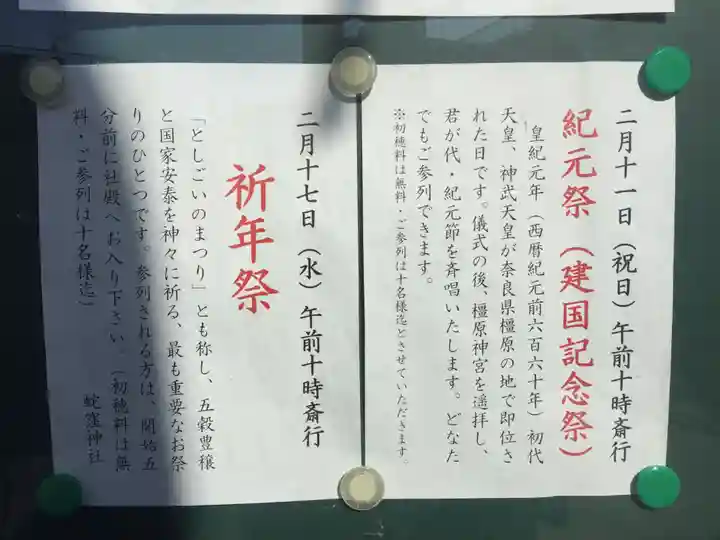 二月十一日(祝日)午前十時斎行
紀元祭(建国記念祭)
皇紀元年(西暦紀元前六百六十年)初代
天皇、神武天皇が奈良県橿原の地で即位さ
れた日です。儀式の後、橿原神宮を遥拝し、
君が代・紀元節を斉唱いたします。どなた
でもご参列できます。
※初穂料は無料・ご参列は十名様迄とさせていただきます。
二月十七日(水)午前十時斎行
祈年祭
「としごいのまつり」とも称し、五穀豊穣
と国家安泰を神々に祈る、最も重要なお祭
りのひとつです。参列される方は、開始五
分前に社殿へお入り下さい。(初穂料は無
料・ご参列は十名様迄)
蛇窪神社